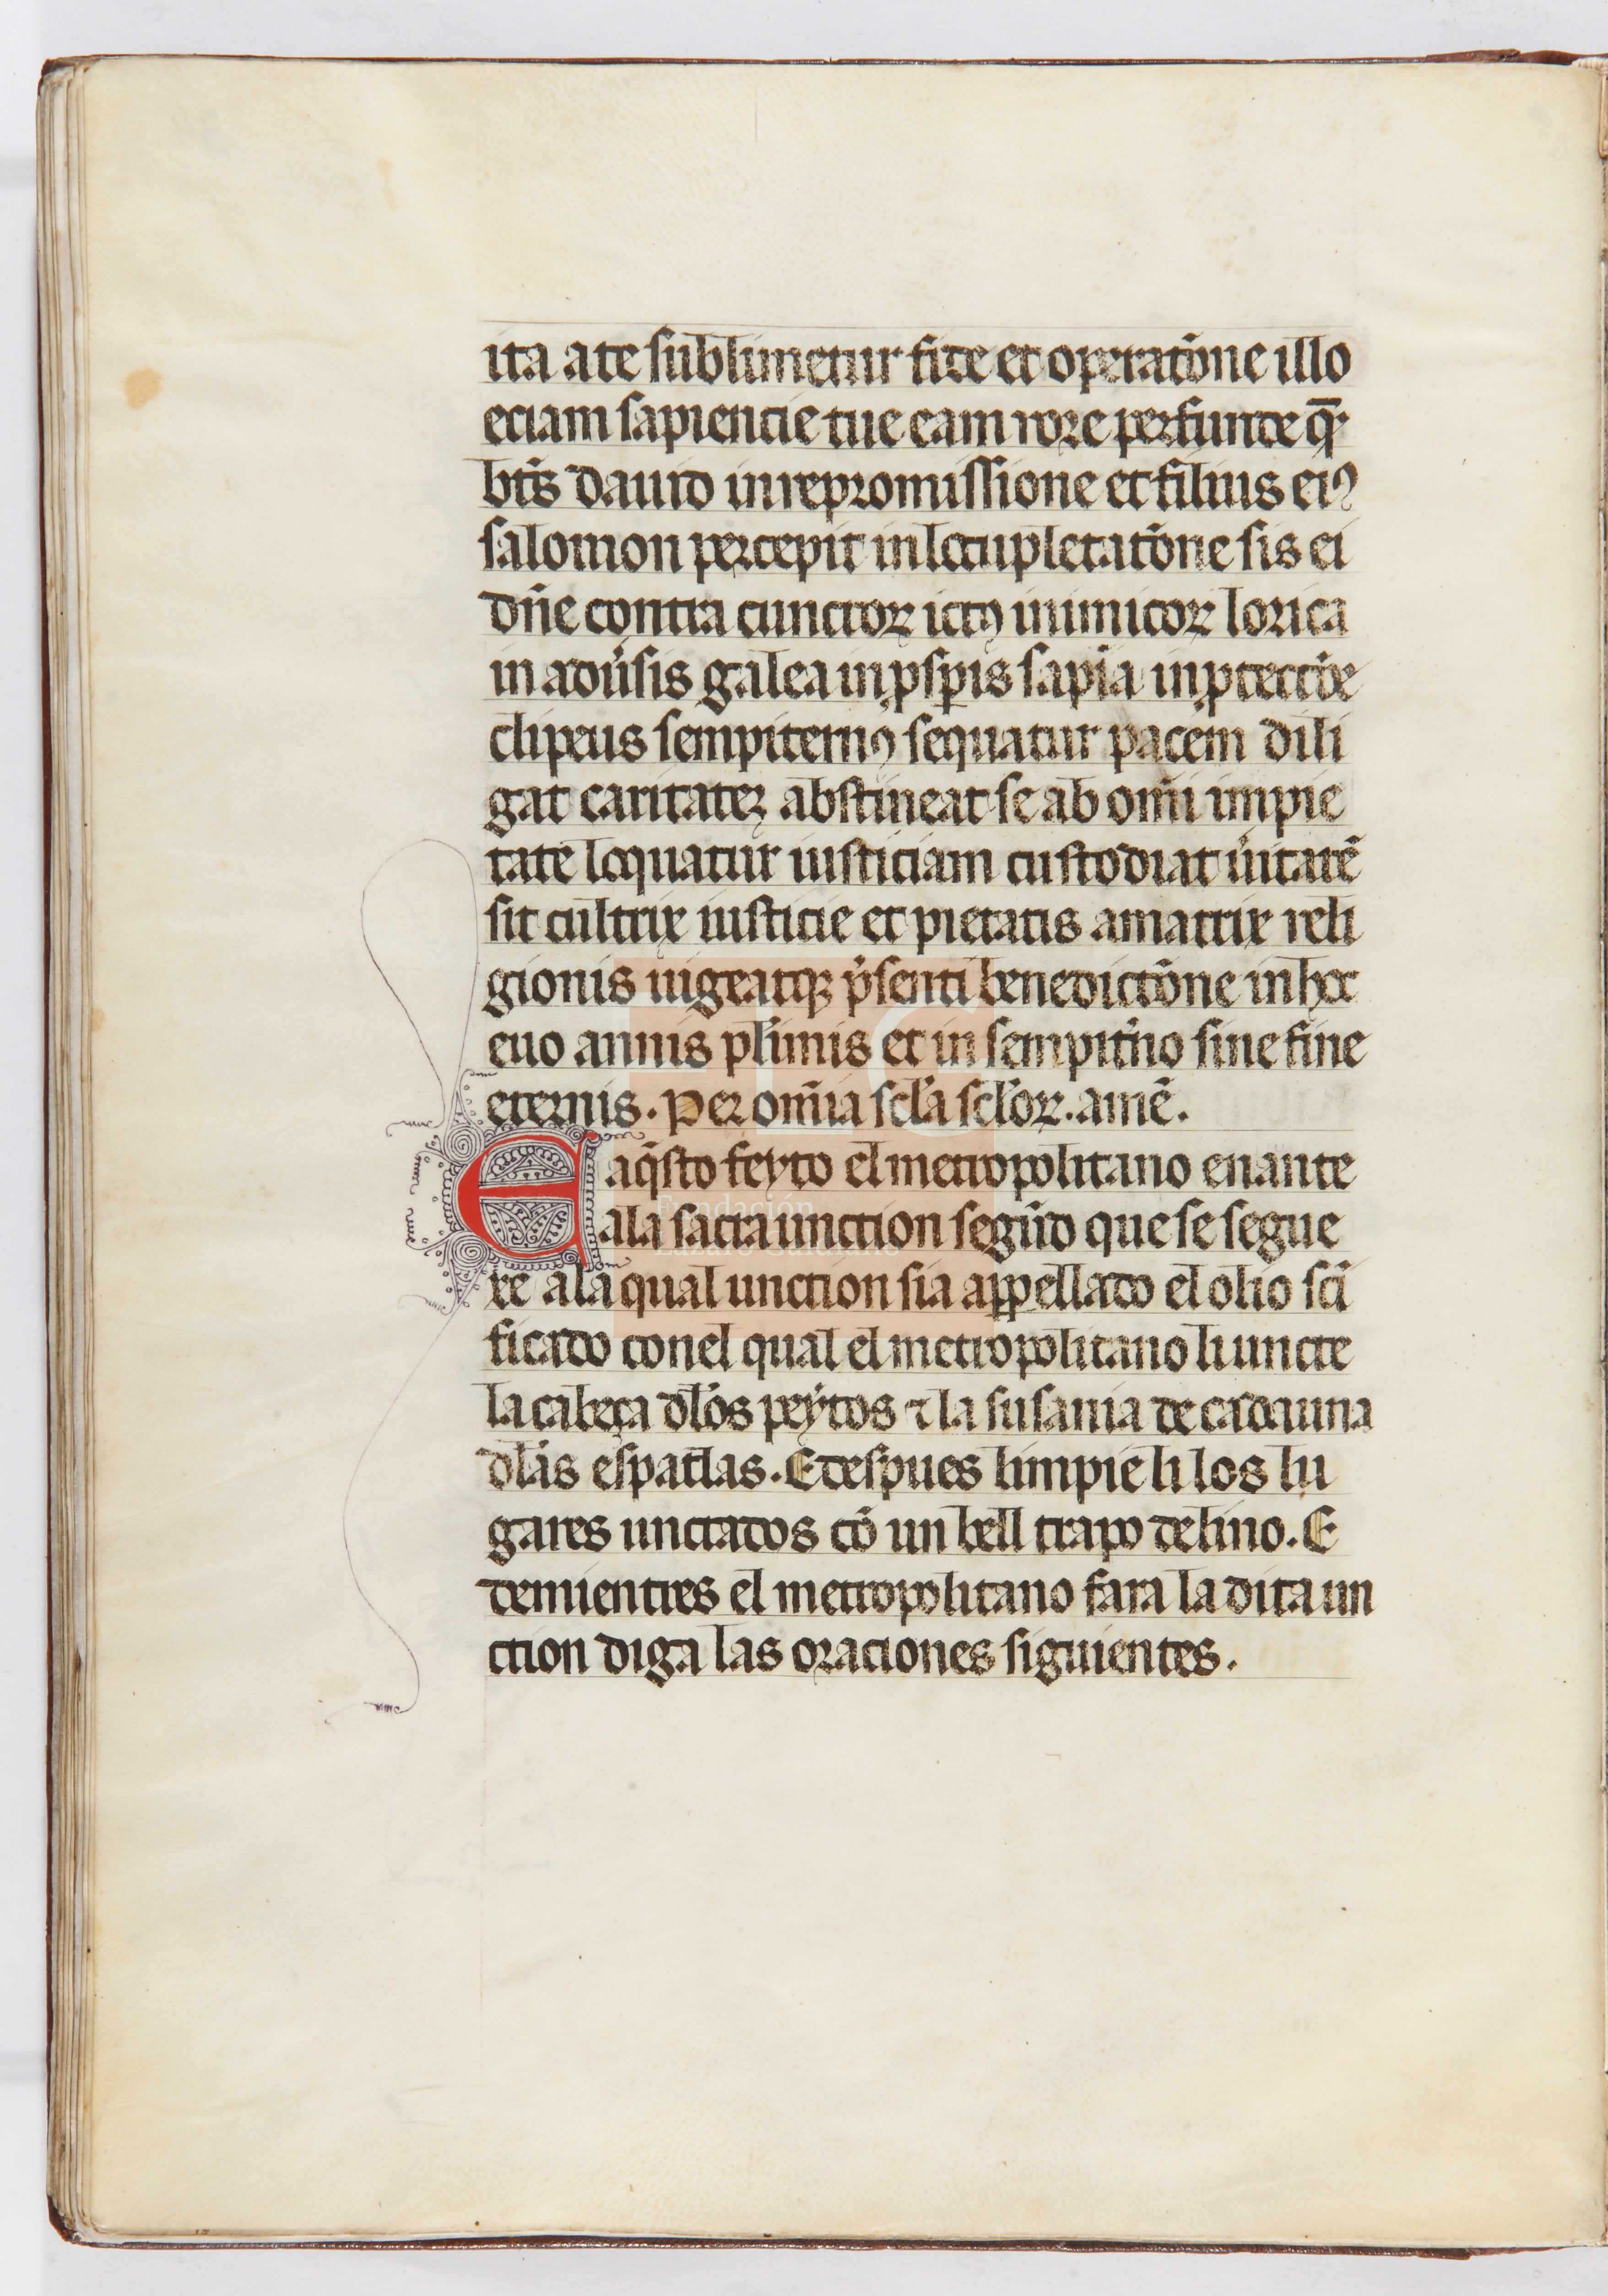 ita a te sublimetur fide et operatōne illo
eciam sapiencie tue eam rore perfunde q̄
bt̄s dauid in repromissione et filius eiꝰ
salomon percepit in locupletatōne sis ei
dn̄e contra cunctoꝝ ictꝰ inimicoꝝ lorica
in adu̓sis galea in ꝓsꝑis sapīa in ꝓtectōe
clipeus sempiternꝰ sequatur pacem dili
gat caritatēz abstineat se ab om̄i impie
tate loquatur iusticiam custodiat u̓itatē
sit cultrix iusticie et pietatis amatrix reli
gionis uigeatqꝫ p̓senti benedictōne in hoc
euo annis plīmis et in sempit̓no sine fine
eternis. Per om̄ia sc̄la sc̄loꝝ. amē.
E aq̓sto feyto el metropolitano enante
a la sacra unction segūd que se segue
xe a la qual unction sia appellado el olio sc̄i
ficado con el qual el metropolitano li uncte
la cabeça dl̄os peytos ⁊ la susania de cadauna
dl̄as espatlas. E despues limpie li los lu
gares unctados cō un bell trapo de lino. E
demientres el metropolitano fara la dita un
ction diga las oraciones siguientes.
Fundación
Lázaro Galdiano